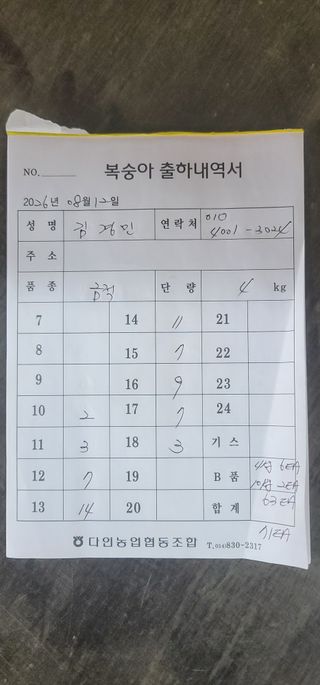 NO.
복숭아 출하내역서
2026년 08월 12일
성 명 김정민 연락처 010 4001-3024
주 소
품 종 금적 단 량 4 kg
7 14 11 21
8 15 7 22
9 16 9 23
10 2 17 7 24
11 3 18 3 기 스
12 7 19 B 품 4상 6EA 10상 2EA
13 14 20 합 계 63EA
71EA
다인농업협동조합 T.054)830-2317